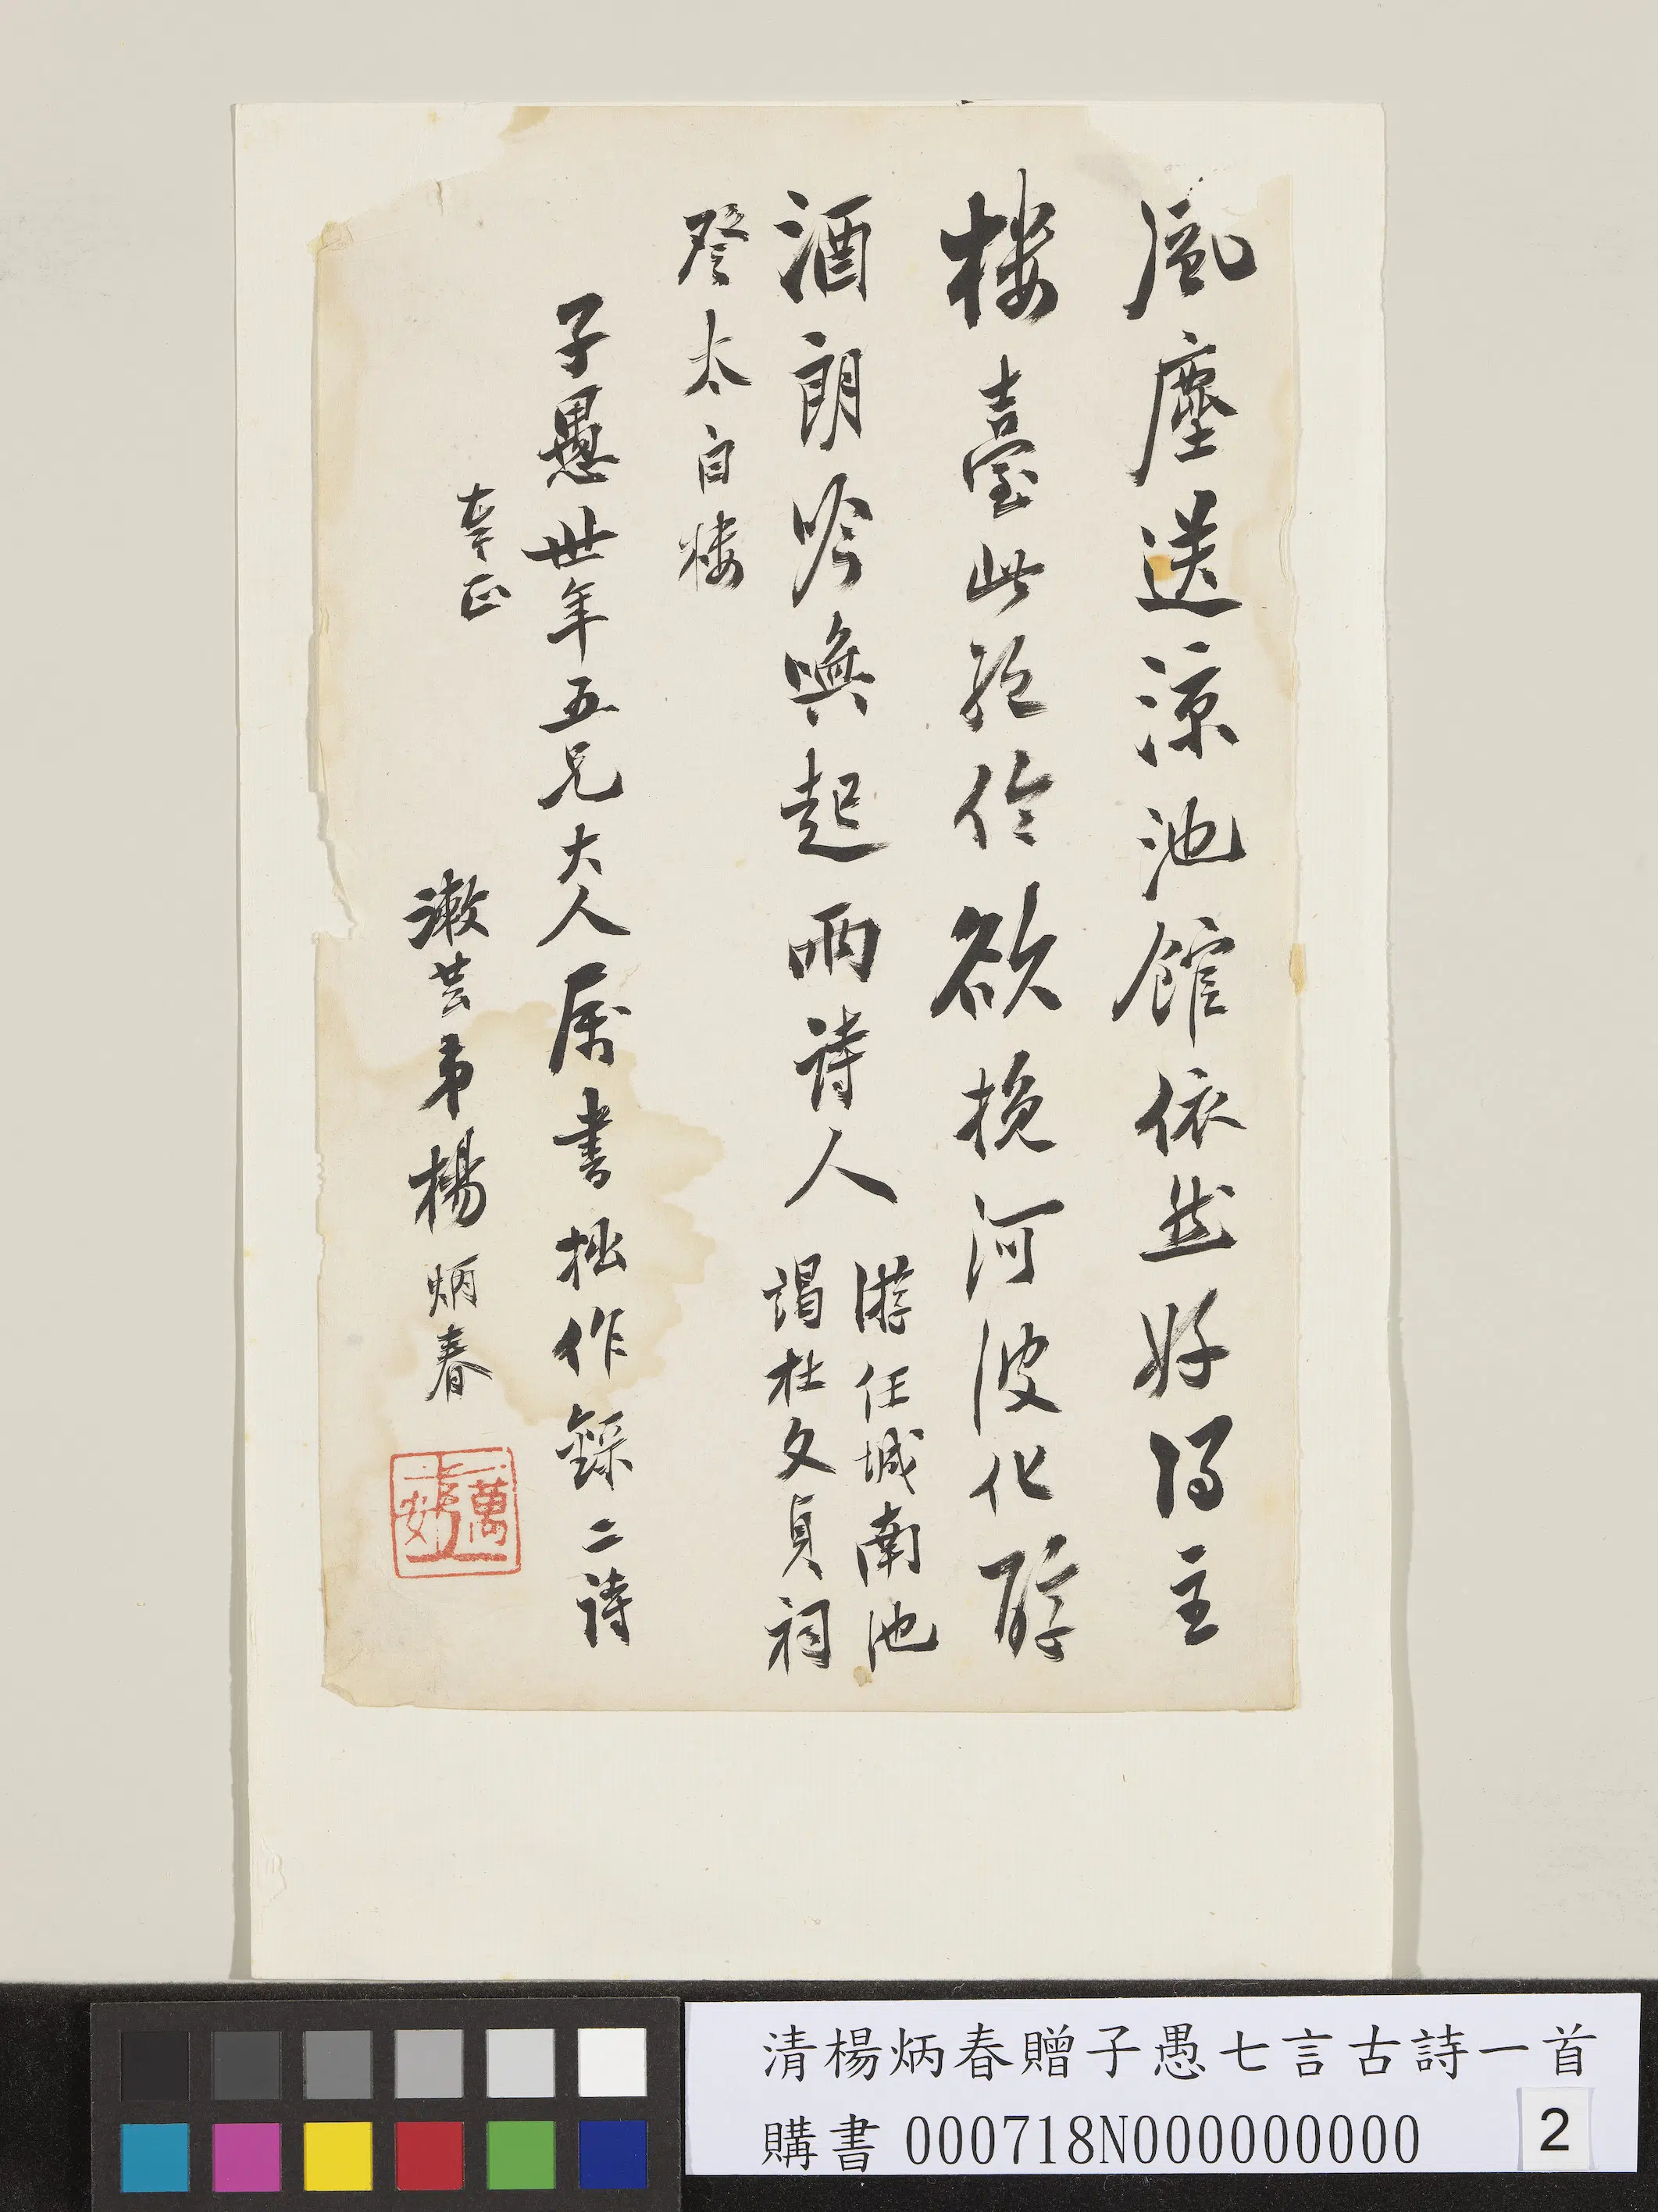 風塵送涼池館依然好得主
樓臺此孤伶欲挽河波化醇
酒朗吟喚起兩詩人
游任城南池
謁杜文貞祠
登太白樓
子愚世年五兄大人屬書拙作錄二詩
幸正
漱芸弟楊炳春
萬
清楊炳春贈子愚七言古詩一首
購書 000718N000000000
2